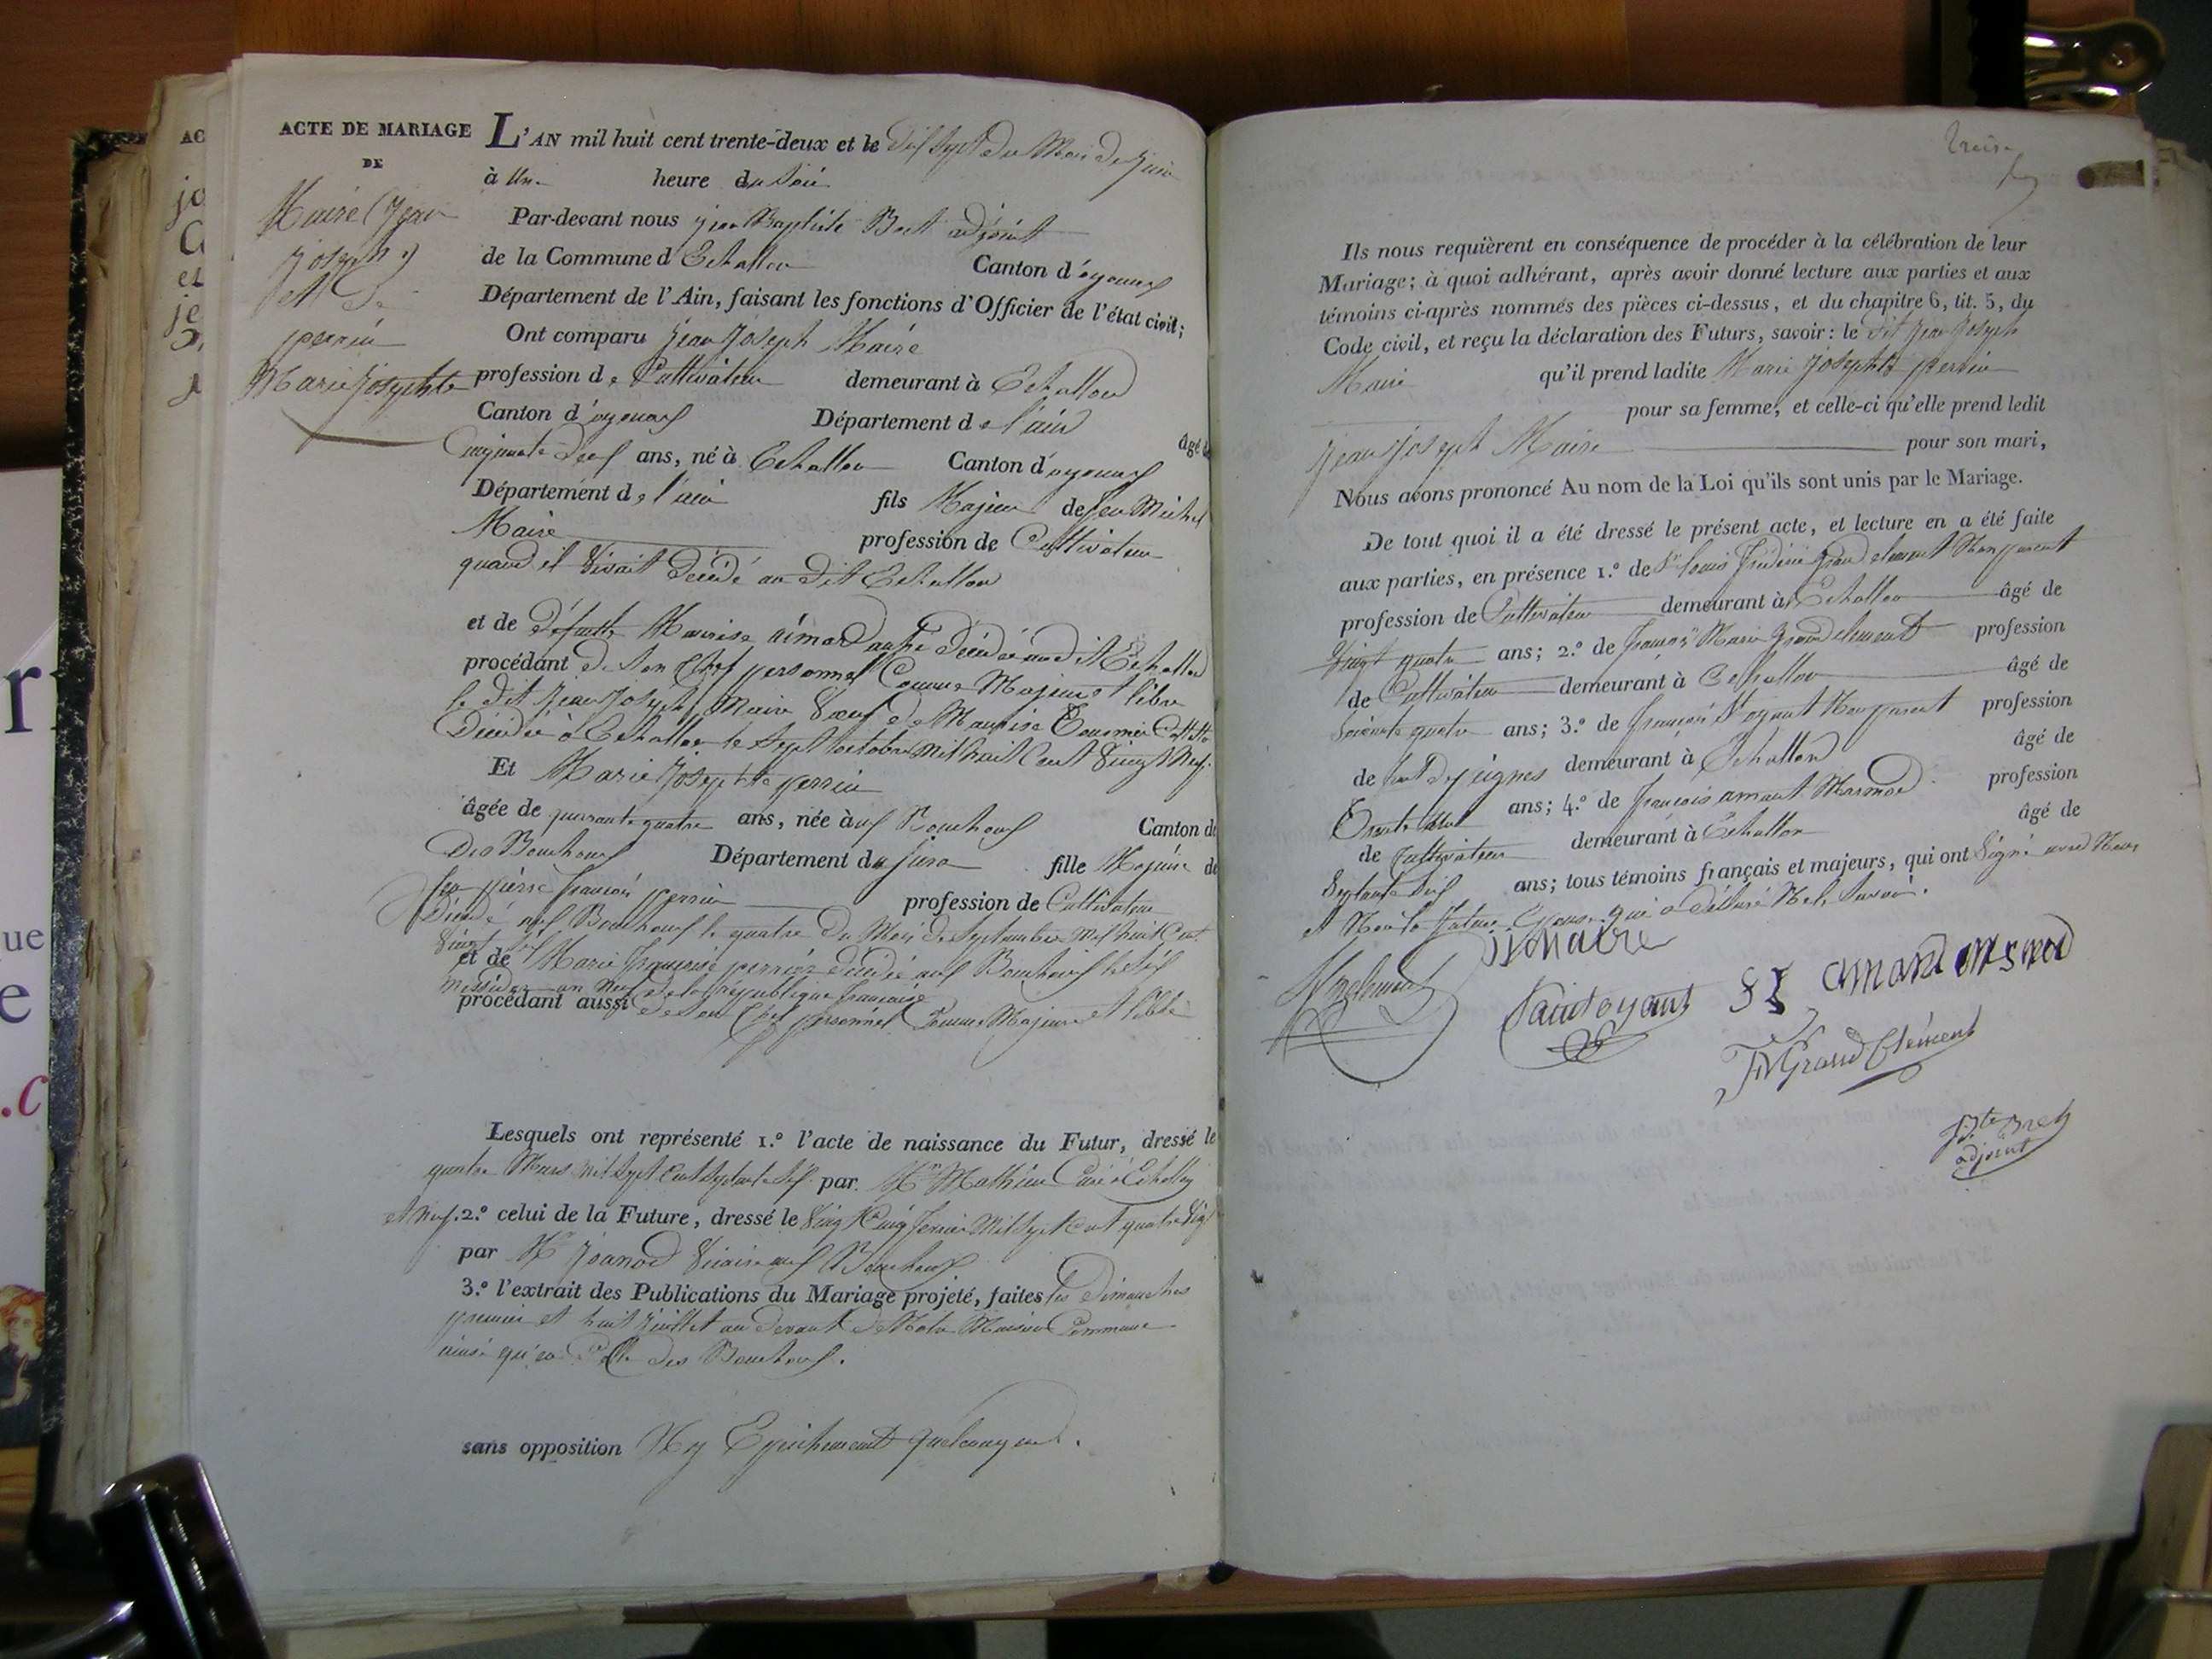 ACTE DE MARIAGE
DE
Maire (Jean
Joseph)
et De
perrin
Marie Josephte
L'AN mil huit cent trente-deux et le dix Sept du Mois de Juin
à Un heure du Soir
Par-devant nous jean Baptiste Bret adjoint
de la Commune d'Echallon Canton d'oyonnax
Département de l'Ain, faisant les fonctions d'Officier de l'état civil;
Ont comparu Jean Joseph Maire
profession de Cultivateur demeurant à Echallon
Canton d'oyonnax Département de l'ain âgé de
Cinquante Deux ans, né à Echallon Canton d'oyonnax
Département de l'ain fils Majeur de feu Michel
Maire profession de Cultivateur
quand il vivait décédé au dit Echallon
et de défunte Maurise aimard aussi décédée au dit Echallon
procédant de Son Chef personnel Comme Majeur et libre
le dit Jean Joseph Maire Veuf de Maurise
Décédée à Echallon le Sept octobre Mil huit Cent Vingt Neuf.
Et Marie Josephte perrin
âgée de quarante quatre ans, née aux Bouchoux Canton de
Des Bouchoux Département du jura fille Majeure de
feu pierre françois perrin profession de Cultivateur
Décédé aux Bouchoux le quatre du Mois de Septembre Mil huit Cent
Vingt
et de Marie françoise perrier décédée aux Bouchoux le Six
Messidor an Neuf de la république française
procédant aussi de Son Chef personnel Comme Majeure et libre
Lesquels ont représenté 1.º l'acte de naissance du Futur, dressé le
quatre Mars Mil Sept Cent Septante Six par Mr Mathieu Curé à Echallon
et Neuf. 2.º celui de la Future, dressé le Vingt Cinq fevrier Mil Sept Cent quatre Vingt
par Mr Joanod Vicaire aux Bouchoux
3.º l'extrait des Publications du Mariage projeté, faites les Dimanches
premier et huit Juillet au devant de Notre Maison Commune
ainsi qu'en Celle des Bouchoux.
sans opposition Ny Empêchement quelconque.
Treize
Ils nous requièrent en conséquence de procéder à la célébration de leur
Mariage; à quoi adhérant, après avoir donné lecture aux parties et aux
témoins ci-après nommés des pièces ci-dessus, et du chapitre 6, tit. 5, du
Code civil, et reçu la déclaration des Futurs, savoir: le dit Jean Joseph
Maire qu'il prend ladite Marie Josephte perrin
pour sa femme, et celle-ci qu'elle prend ledit
Jean Joseph Maire pour son mari,
Nous avons prononcé Au nom de la Loi qu'ils sont unis par le Mariage.
De tout quoi il a été dressé le présent acte, et lecture en a été faite
aux parties, en présence 1.º de Sr louis frederic Grand clement Non parent
profession de Cultivateur demeurant à Echallon âgé de
Vingt quatre ans; 2.º de françois Marie Grand clement profession
de Cultivateur demeurant à Echallon âgé de
Soixante quatre ans; 3.º de françois St oyant Non parent profession
de peignes demeurant à Echallon âgé de
Trente ans; 4.º de françois amant Marmod profession
de Cultivateur demeurant à Echallon âgé de
Septante Six ans; tous témoins français et majeurs, qui ont Signé avec Nous
et Non la future Epouse qui a déclaré Ne le Savoir.
JJ Maire
Saintoyant
amant
FMGrand Clément
JBte Bret
adjoint